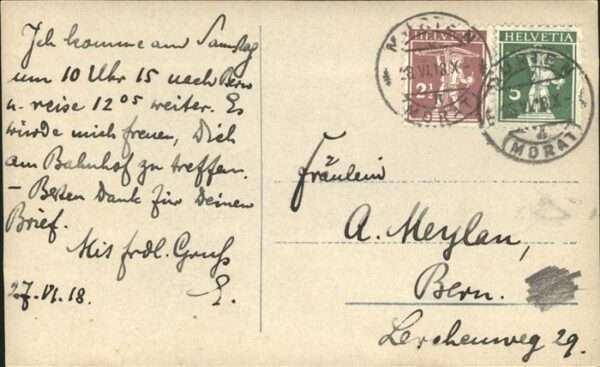 Ich komme am Samstag
um 10 Uhr 15 nach Bern
u. reise 12 05 weiter. Es
würde mich freuen, Dich
am Bahnhof zu treffen.
– Besten Dank für Deinen
Brief.
Mit frdl. Gruß
27.VI.18. E.
HELVETIA
2½
5
MURTEN
VI.18.X
(MORAT)
MURTEN
VI.18.X
(MORAT)
Fräulein
A. Meylan,
Bern.
Lerchenweg 29.